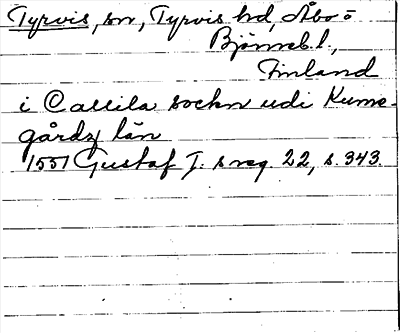 Tyrvis, sn, Tyrvis hd, Åbo o
Björneb. l.,
Finland
i Callila sockn udi Kumo-
gårdz län
1551 Gustaf I:s reg. 22, s. 343.